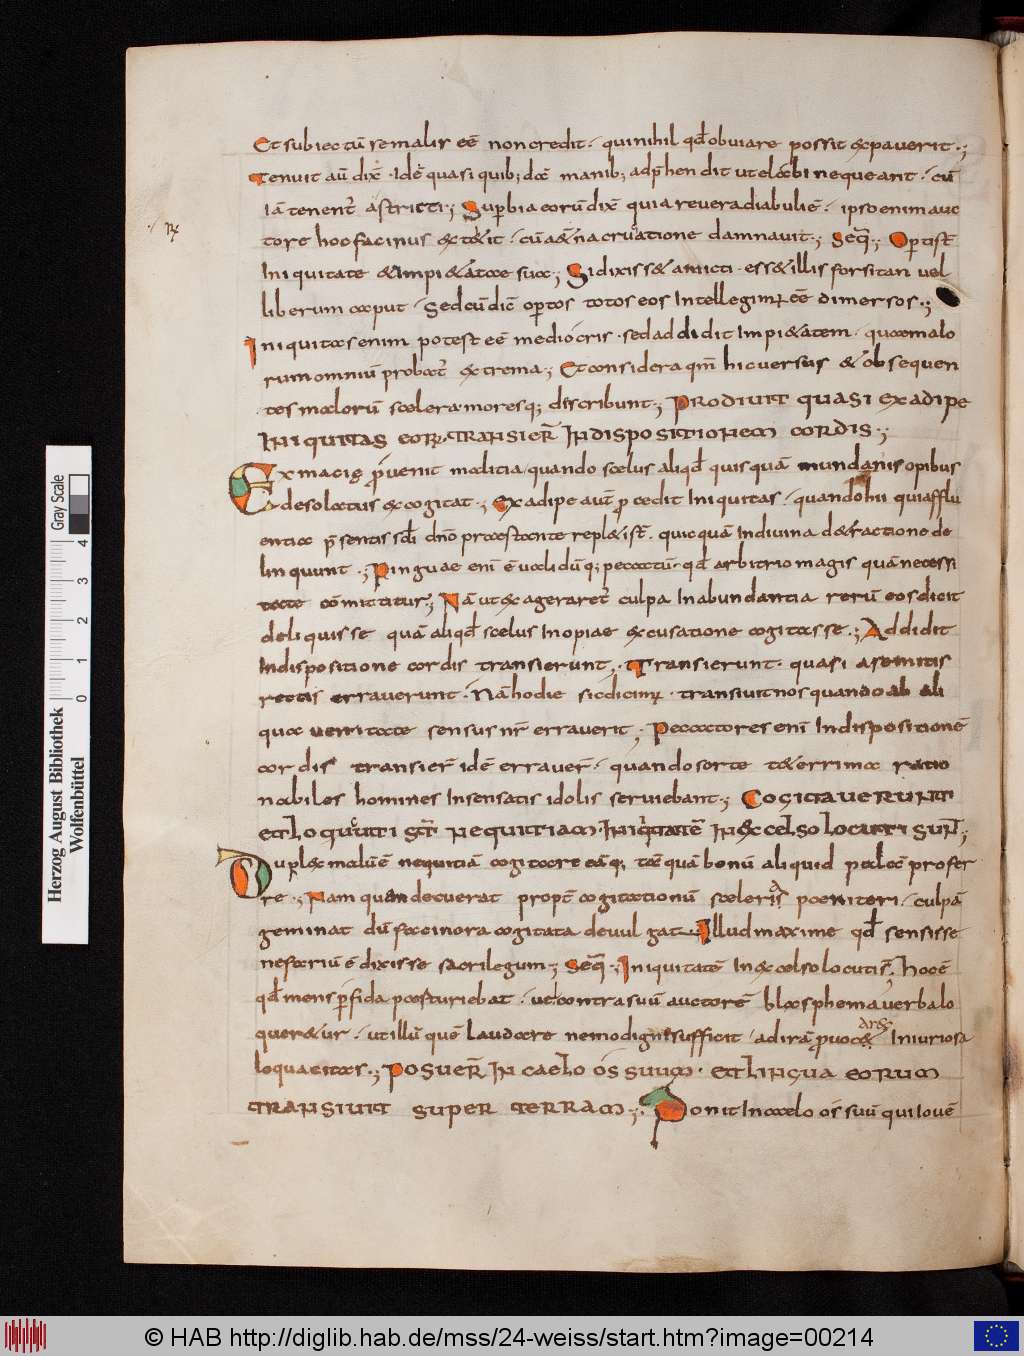 Et subiectū se malis eē non credit · qui nihil qđ obviare possit expaverit ·;
Tenuit aū dix̄ · Idē quasi quib; dā manib; adp̄hendit ut elabi nequeant · cū
iā tenent̄ astricti ·; Superbia eorū dix̄ quia revera diabuli ē · ipso enim auc
tore hoc facinus extetit · cū aetna cruatione damnavit ·; Seq̄ ·; Operti st̄
Iniquitate et impietate sua ·; Si dixisset amicti · esset illis forsitan vel
liberum caput · Sed cū dic̄ opertos totos eos Intellegim; eē dimersos ·;
Iniquitas enim potest eē mediocris · sed addidit Impietatem · quae malo
rum omniū probat̄ extrema ·; Et considera qm̄ hic versus et obsequen
tes malorū scelera moresq; describunt ·; Prodivit quasi ex adipe
Iniquitas eorꝝ · transier̄ In dispositionem cordis ·;
Ex macis p̄venit malitia quando scelus aliqđ quisquā mundanis opibus
desolatus excogitat ·; Ex adipe aut̄ procedit Iniquitas · quando hii qui afflu
entia p̄sentis scl̄i dn̄o praestante repleti st̄ · quicquā In divina detractione de
linquunt ·; Pinguae eni ē validūq; peccatū · qđ arbitrio magis quā necessi
tate cōmittitur ·; Nā ut exageraret̄ culpa In abundantia rerū eos dicit
deliquisse quā aliqđ scelus Inopiae excusatione cogitasse ·; Addidit
In dispositione cordis transierunt · Transierunt · quasi a semitis
rectis erraverunt · Nā hodie sic dicim; · transivit nos quando ab ali
qua veritate sensus nr̄ erraverit · Peccatores eni In dispositionē
cordis transier̄ idē erraver̄ · quando certe teterrima ratio
nabiles homines Insensatis idolis serviebant ·; Cogitaverunt
et loquuti st̄ nequitiam · Iniq̄tatē In excelso locuti sun̄ ·;
Duplex malū ē nequitiā cogitare eāq; tā quā bonū aliquid palā profer
re ·; Nam quando cuerat propt̄ cogitationū sceleris poeniteri · culpā
geminat dū facinora cogitata devulgat · Illud maxime qđ sensisse
nefariū ē dixisse sacrilegum ·; Seq̄ ·; Iniquitatē In excelso locuti st̄ · Hoc ē
qđ mens p̄fida parturiebat · ut contra suū auctorē blasphema verba lo
queretur · ut illū quē laudare nemo digni sufficit · ad irā p̄vocaret Iniuriosa
loquacitas ·; Posuer̄ In caelo os suum · et lingua eorum
transivit super terram ·; Ponit In caelo os suū qui Iovē
Herzog August Bibliothek
Wolfenbüttel
0 1 2 3 4
Gray Scale
© HAB http://diglib.hab.de/mss/24-weiss/start.htm?image=00214